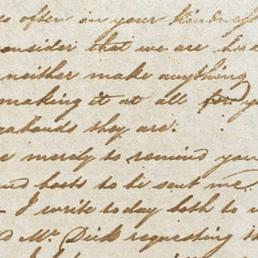 so often in your kindness
consider that we are here
neither make anything
making it at all for y
vagabonds they are.
e merely to remind you
and books to be sent me.
- I write today both to
d Mr. Dick requesting th